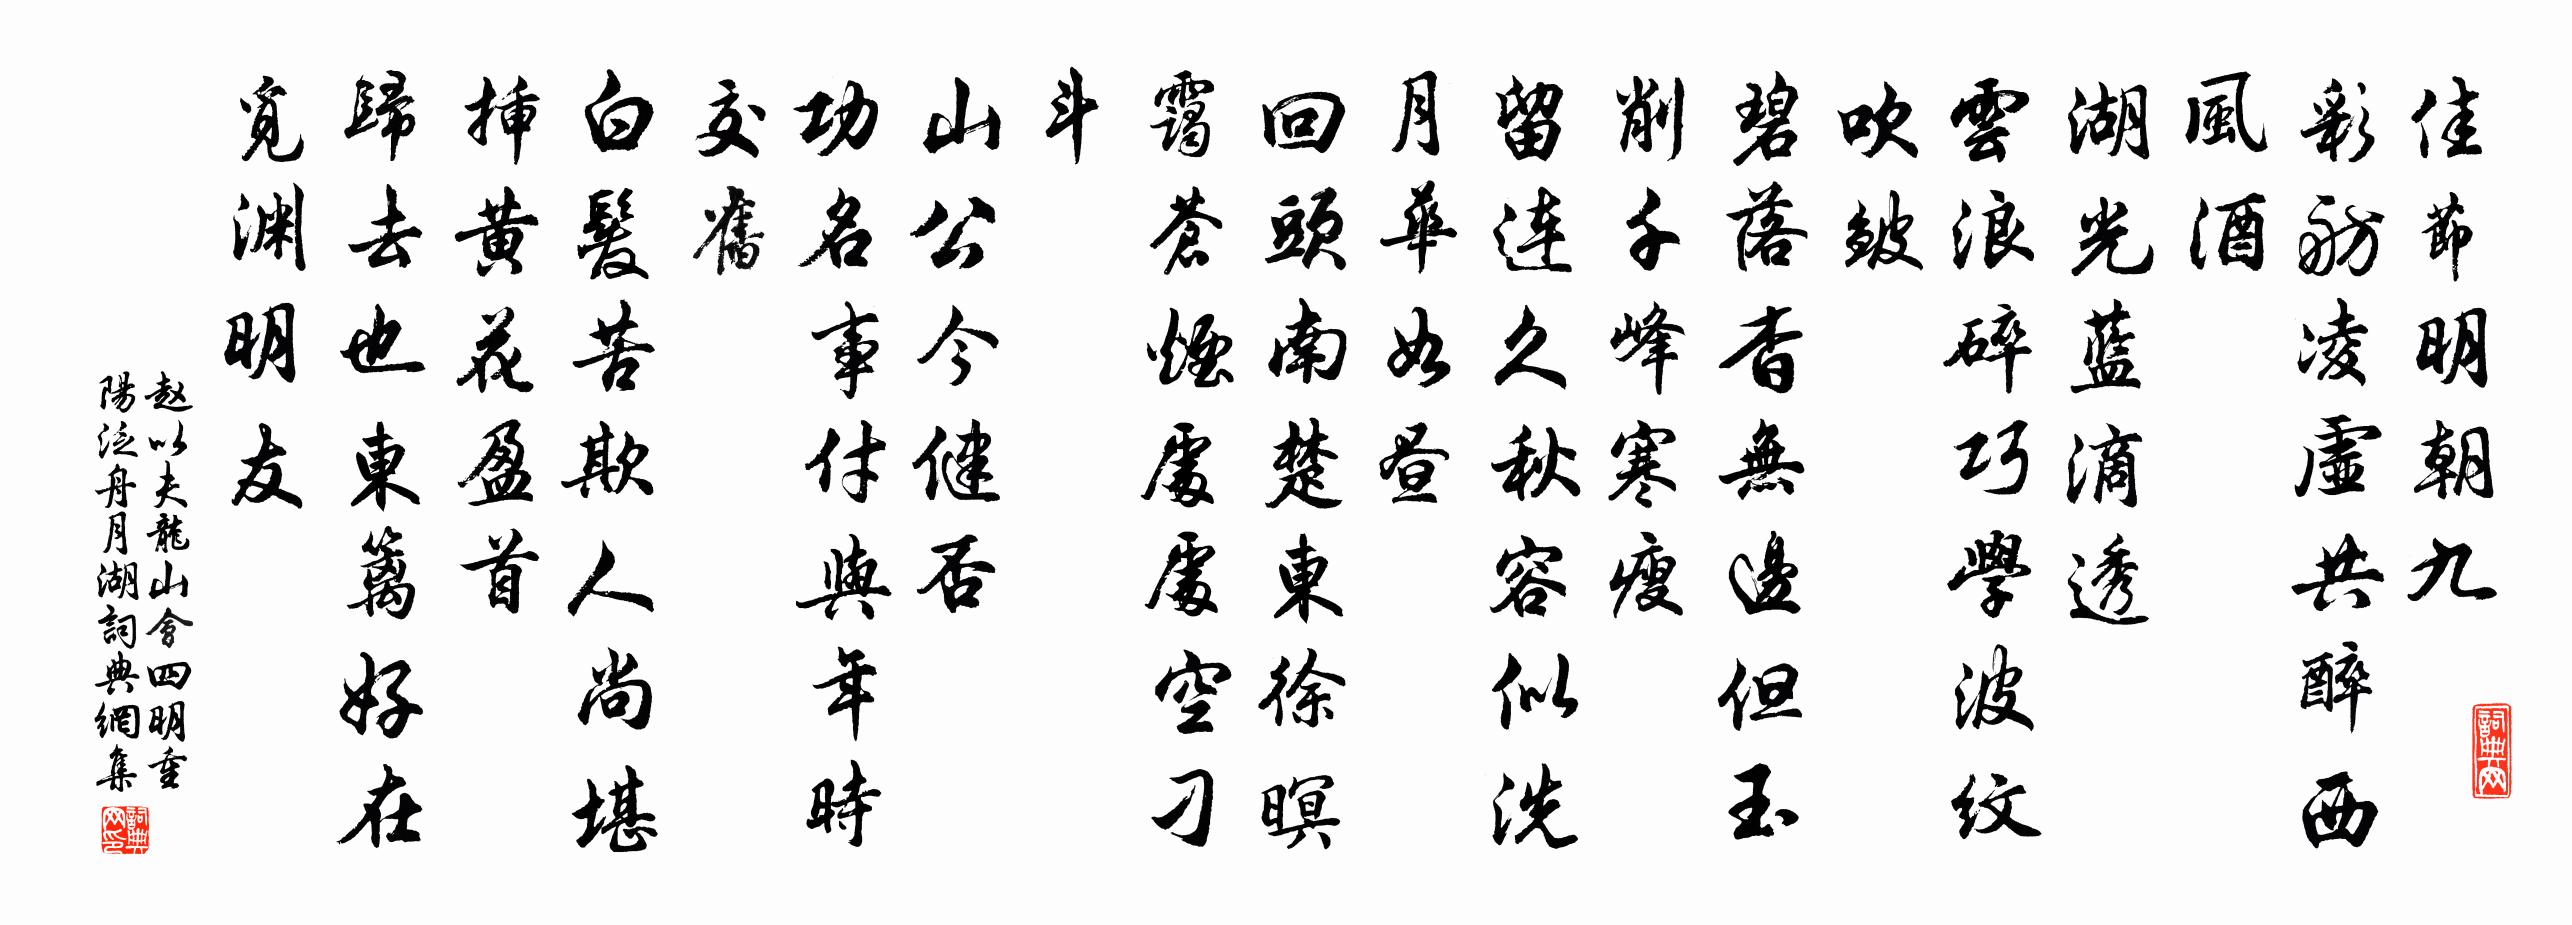 佳節明朝九
彩舫凌虛共醉西
風酒
湖光藍滴透
雲浪碎巧學波紋
吹皺
碧落杳無邊但玉
削千峰寒瘦
留連久秋容似洗
月華如晝
回頭南楚東徐暝
靄蒼煙處處空刁
斗
山公今健否
功名事付與年時
交舊
白髮苦欺人尚堪
插黄花盈首
歸去也東籬好在
覓淵明友
赵以夫龍山會四明重
陽泛舟月湖詞典網集
詞典网
詞典网印